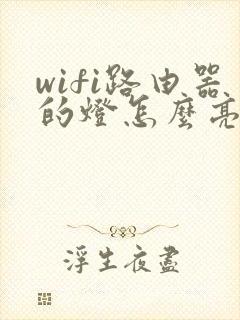 wifi路由器
的燈怎麼亮
浮生夜盡